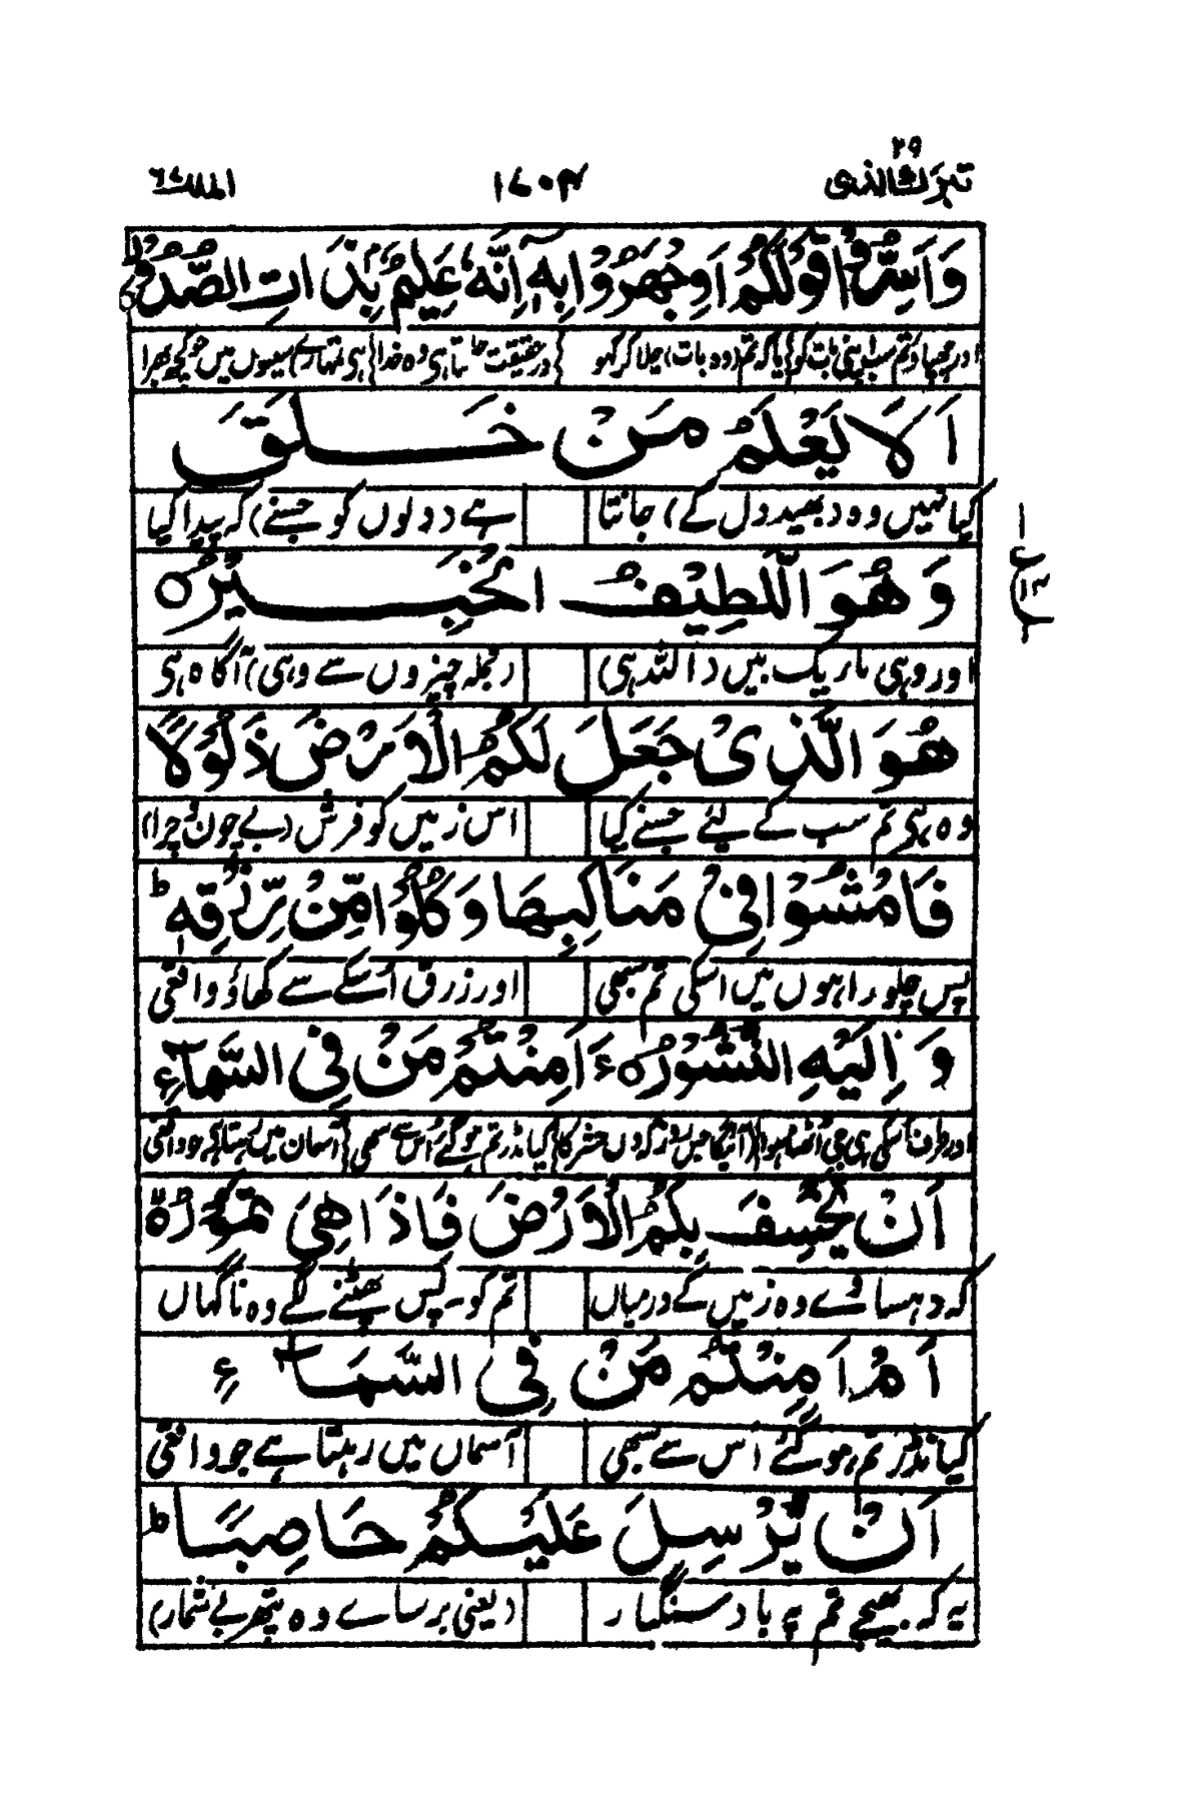 تبٰرک الذی ۲۹
۱۷۰۴
الملک ۶۷
وَاَسِرُّوْا قَوْلَكُمْ اَوِ جْهَرُوْا بِهٖ اِنَّهٗ عَلِيْمٌۢ بِذَاتِ الصُّدُوْرِ
اور چھپاؤ تم سب اپنی بات کو یا کہ تم (وہ بات) چلا کر کہو در حقیقت جانتا ہی وہ خدا ہی تمہارے سینوں میں جو کچھ بھرا
اَلَا يَعْلَمُ مَنْ خَلَقَ
کیا نہیں وہ (بھید دل کے) جانتا ہے (دلوں کو جسنے) کہ پیدا کیا
وَهُوَ اللَّطِيْفُ الْخَبِيْرُ ۝
اور وہی باریک بیں (اللہ ہی) (جملہ چیزوں سے وہی) آگاہ ہی
هُوَ الَّذِىْ جَعَلَ لَكُمُ الْاَرْضَ ذَلُوْلًا
وہ ہی تم سب کے لئے جسنے کیا اس زمیں کو فرش (بے چون و چرا)
فَامْشُوْا فِىْ مَنَاكِبِهَا وَكُلُوْا مِنْ رِّزْقِهٖ ط
پس چلو راہوں میں اسکی تم سبھی اور رزق اُسکے سے کھاؤ واقعی
وَ اِلَيْهِ النُّشُوْرُ ۝ ءَاَمِنْتُمْ مَّنْ فِى السَّمَآءِ
اور طرف اسکی ہی جی اُٹھنا ہوا (آئیگا جس روز کہ دن حشر کا) کیا نڈر تم ہو گئے اُس سے سبھی آسمان میں رہتا ہے جو واقعی
اَنْ يَّخْسِفَ بِكُمُ الْاَرْضَ فَاِذَا هِىَ تَمُوْرُ ۝
کہ دھسا دے وہ زمیں کے درمیاں تم کو۔ پس پھٹنے لگے وہ ناگہاں
اَمْ اَمِنْتُمْ مَّنْ فِى السَّمَآءِ
کیا نڈر تم ہو گئے اس سے سبھی آسماں میں رہتا ہے جو واقعی
اَنْ يُّرْسِلَ عَلَيْكُمْ حَاصِبًا ط
یہ کہ بھیجے تم پہ باد سنگسار (یعنی برسائے وہ پتھر بے شمار)